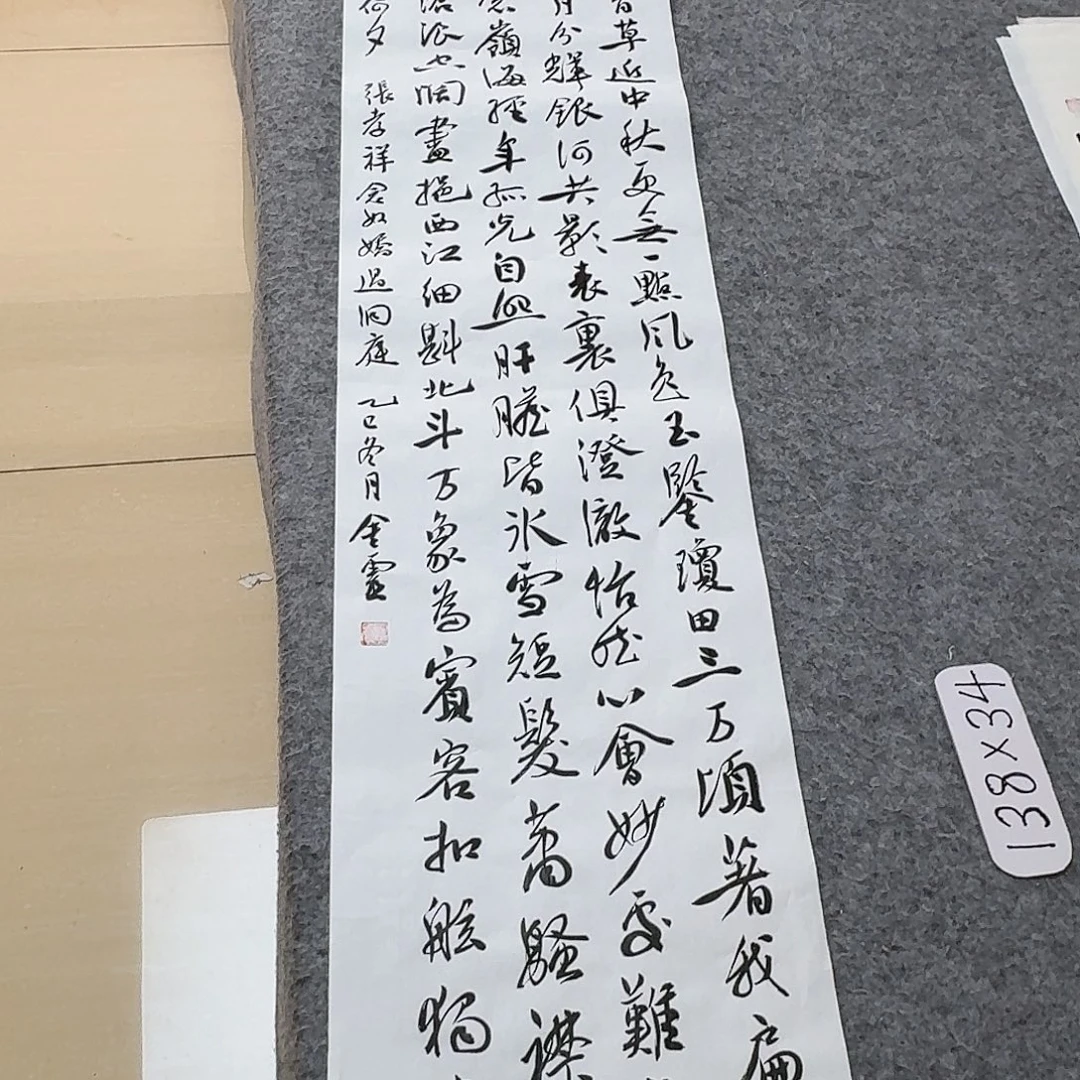 青草近中秋更無一點風色玉鑒瓊田三万頃著我扁
月分輝銀河共影表裏俱澄澈怡然心會妙處難
念嶺海經年孤光自照肝膽皆冰雪短髮蕭騷襟
滄浪空闊盡挹西江細斟北斗万象為賓客扣舷獨
何夕 張孝祥念奴嬌過洞庭 乙巳冬月 金靈
138×34